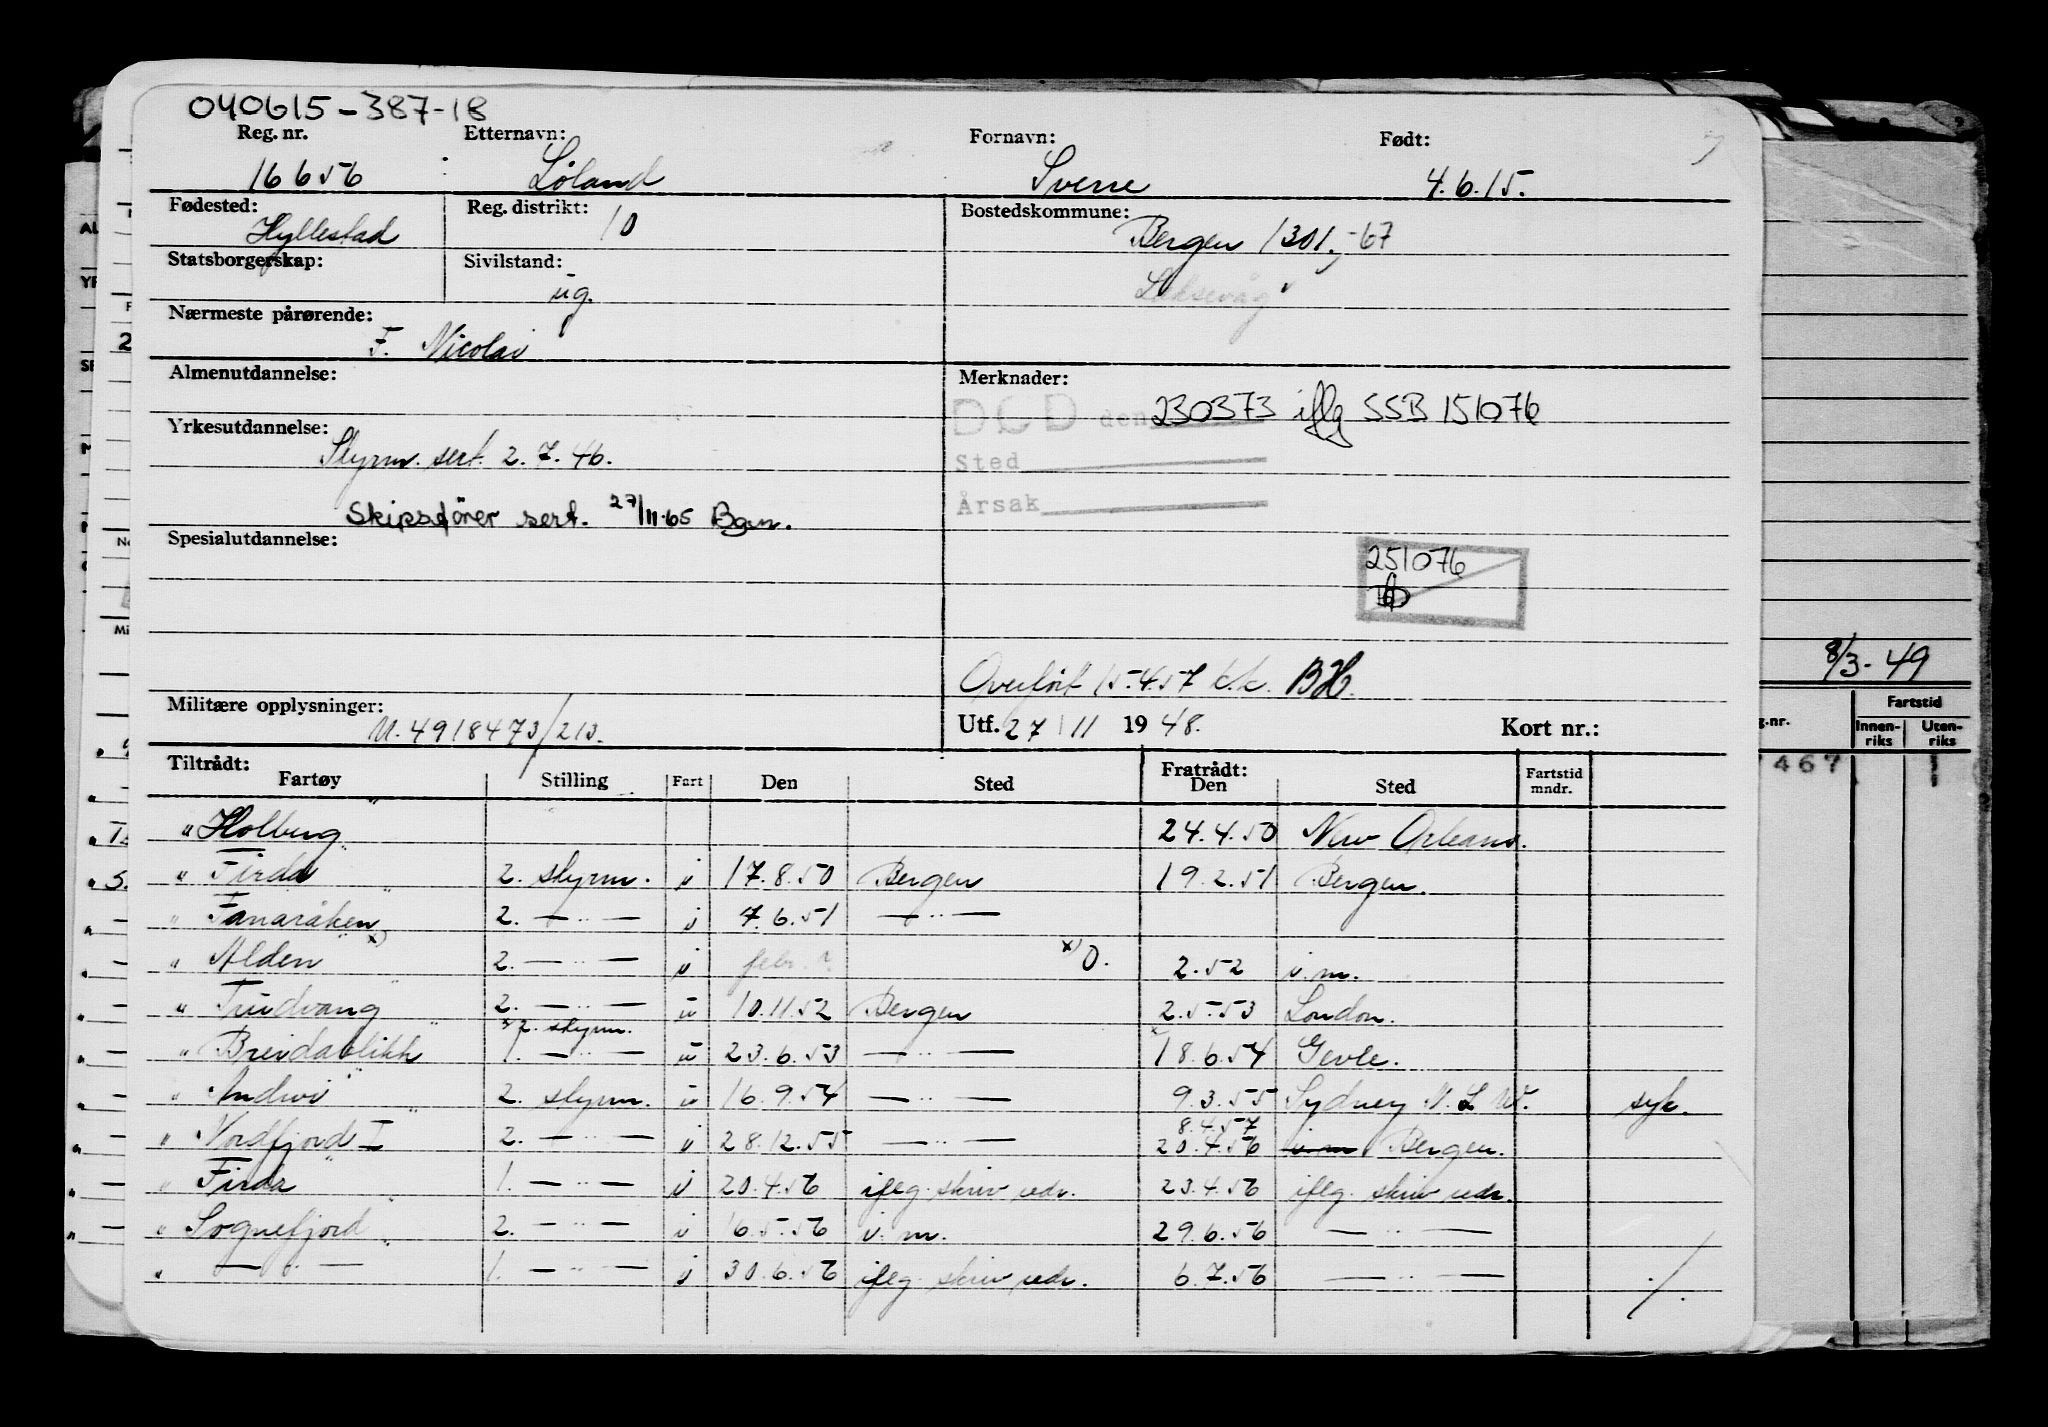 040615-387-18
Reg. nr. Etternavn: Fornavn: Født:
16656 Løland Sverre 4.6.15.
Fødested: Reg. distrikt: Bostedskommune:
Hyllestad 10 Bergen 1301,-67
Statsborgerskap: Sivilstand:
ug. Laksevåg
Nærmeste pårørende:
F. Nicolai
Almenutdannelse: Merknader:
DØD den 230373 iflg SSB 151076
Yrkesutdannelse:
Styrm. sert. 2.7.46. Sted
Skipsfører sert. 27/11-65 Bgn. Årsak
Spesialutdannelse:
251076
Overført 15.4.57 k.k. BH.
8/3-49
Militære opplysninger: Utf. 27/11 1948. Kort nr.:
M.4918473/213.
g.nr. Fartstid
Innen-riks Uten-riks
467
Tiltrådt: Fratrådt:
Fartøy Stilling Fart Den Sted Den Sted Fartstid mndr.
"Holberg" 24.4.50 New Orleans.
"Firda" 2. styrm. i 17.8.50 Bergen 19.2.51 Bergen.
"Fanaråken" 2. —"— i 7.6.51 —"—
"Alden" x) 2. —"— i febr. ? x) O. 2.52 i.m.
"Trudvang" 2. —"— u 10.11.52 Bergen 2.5.53 London.
x 2. styrm.
"Breidablikk" 1. —"— u 23.6.53 —"— x 18.6.54 Gevle.
"Andwi" 2. styrm. u 16.9.54 —"— 9.3.55 Sydney N.S.W. syk.
8.4.57
"Nordfjord I" 2. —"— i 28.12.55 —"— 20.4.56 i.m. Bergen.
"Firda" 1. —"— i 20.4.56 iflg. skriv redr. 23.4.56 iflg. skriv redr.
"Sognefjord" 2. —"— i 16.5.56 i.m. 29.6.56 —"—
" —"— 1. —"— i 30.6.56 iflg. skriv redr. 6.7.56 —"— ./.